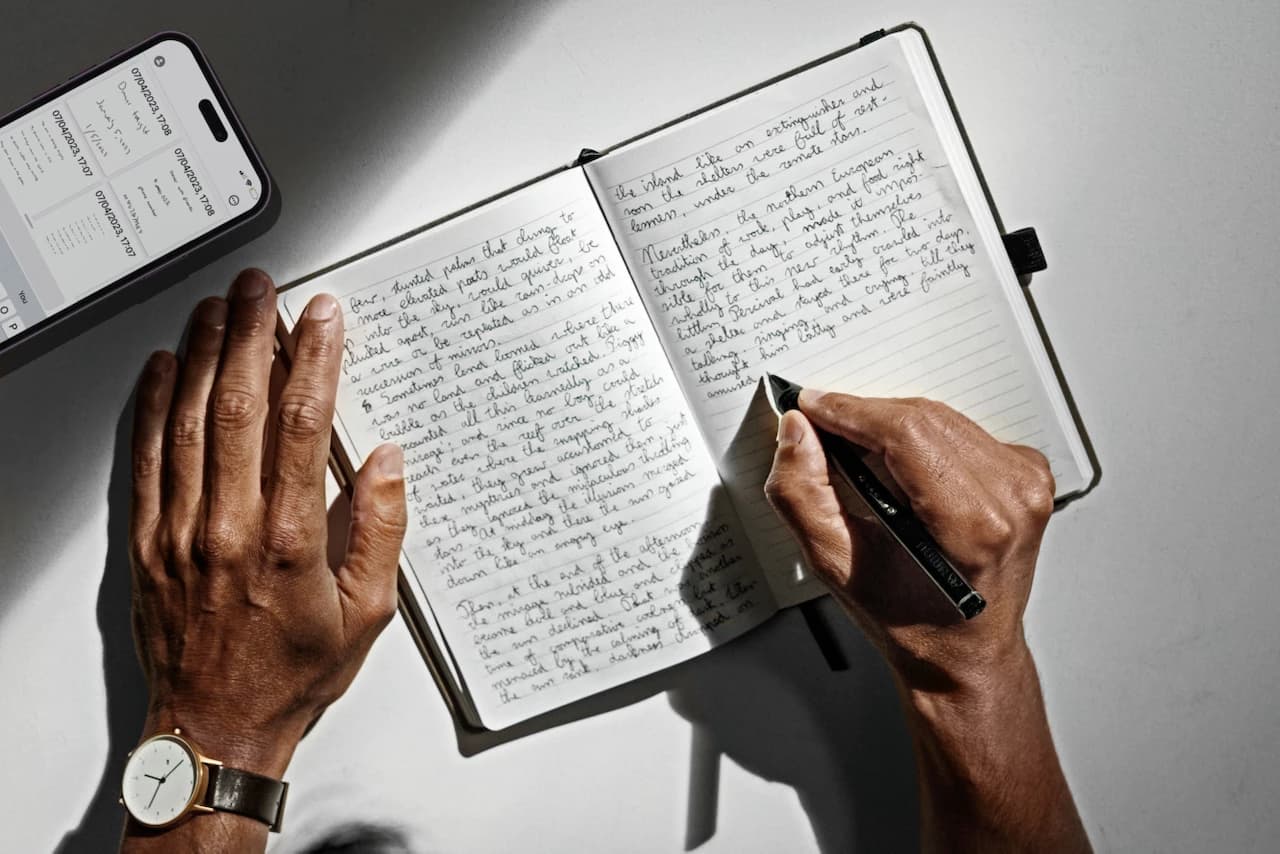 07/04/2023, 17:08
07/04/2023, 17:08
07/04/2023, 17:07
07/04/2023, 17:07
January 5, 2023
1/5/2023
You
O
P
few, stunted palms that clung to
more elevated parts would float
into the sky, would quiver, be
plucked apart, run like rain-drops on
a wire or be repeated as in an odd
succession of mirrors.
Sometimes land loomed where there
was no land and flicked out like a
bubble as the children watched. Piggy
discounted all this learnedly as a
'mirage'; and since no boy could
reach even the reef over the stretch
of water where the snapping sharks
waited, they grew accustomed to
these mysteries and ignored them, just
as they ignored the miraculous throbbing
stars. At midday the illusions merged
into the sky and there the sun gazed
down like an angry eye.
Then, at the end of the afternoon,
the mirage subsided and the horizon
became level and blue and clipped as
the sun declined. That was another
time of comparative coolness but
menaced by the coming of dark. When
the sun sank, darkness dropped on
the island like an extinguisher and
soon the shelters were full of rest-
lessness, under the remote stars.
Nevertheless, the northern European
tradition of work, play, and food right
through the day, made it impos-
sible for them to adjust themselves
wholly to this new rhythm. The
littlun Percival had early crawled into
a shelter and stayed there for two days,
talking, singing, and crying, till they
thought him batty and were faintly
amused